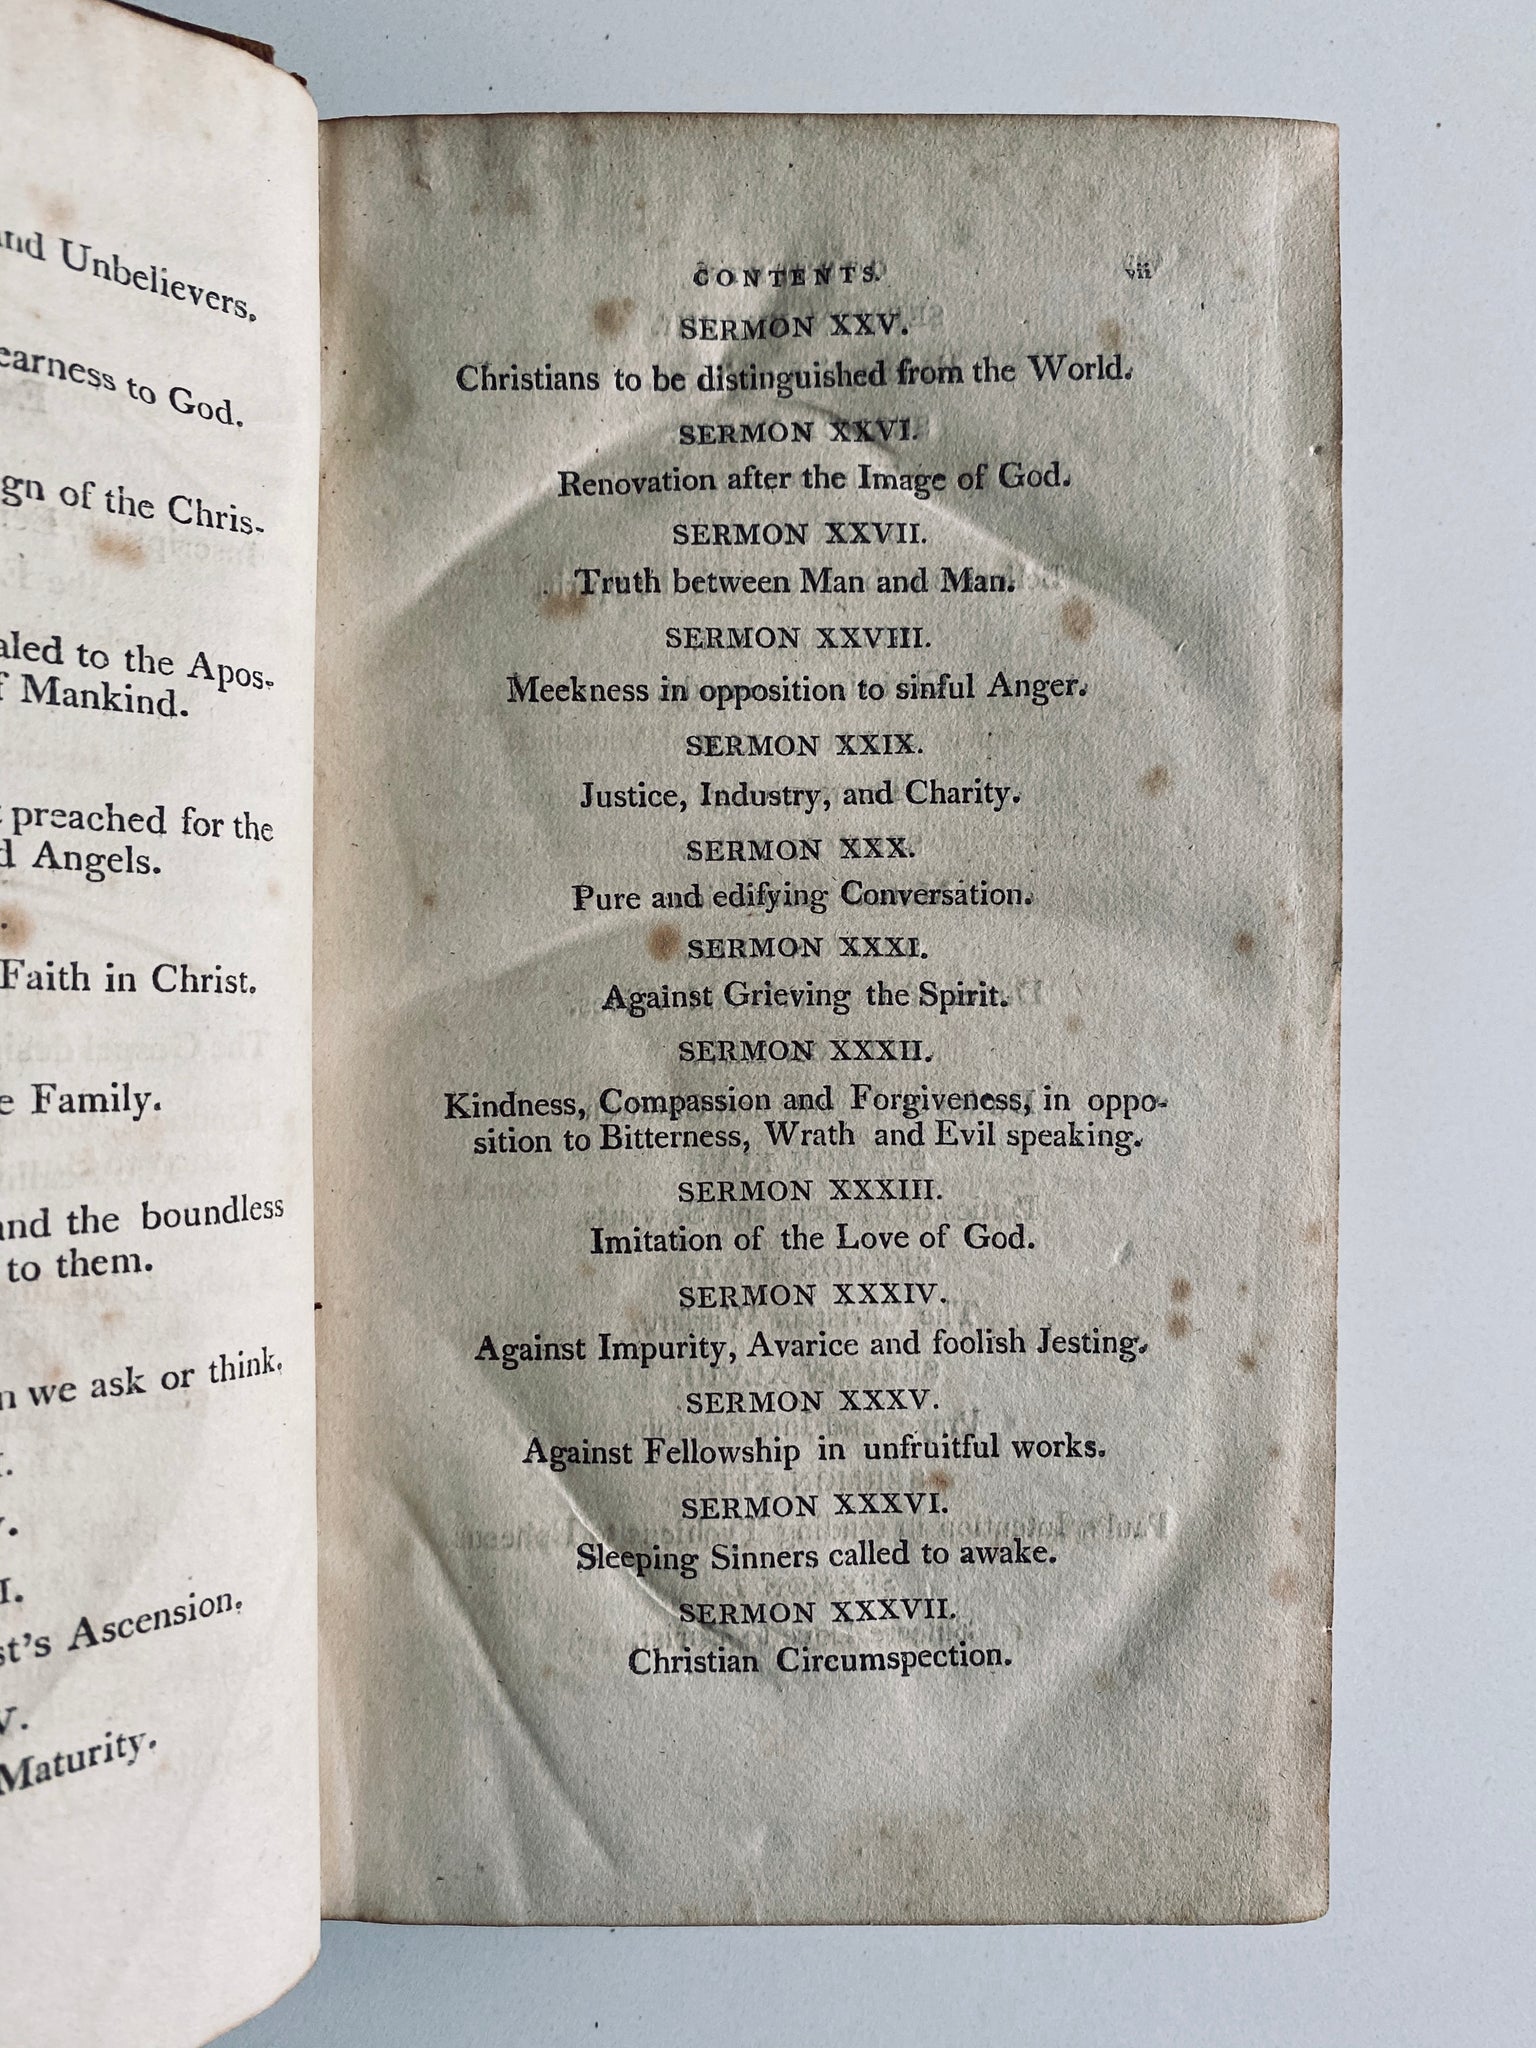 and Unbelievers.
to God.
of the Chris-
to the Apos-
Mankind.
preached for the
Angels.
Faith in Christ.
Family.
and the boundless
to them.
we ask or think.
Ascension.
Maturity.
CONTENTS. vii
SERMON XXV.
Christians to be distinguished from the World.
SERMON XXVI.
Renovation after the Image of God.
SERMON XXVII.
Truth between Man and Man.
SERMON XXVIII.
Meekness in opposition to sinful Anger.
SERMON XXIX.
Justice, Industry, and Charity.
SERMON XXX.
Pure and edifying Conversation.
SERMON XXXI.
Against Grieving the Spirit.
SERMON XXXII.
Kindness, Compassion and Forgiveness, in oppo-
sition to Bitterness, Wrath and Evil speaking.
SERMON XXXIII.
Imitation of the Love of God.
SERMON XXXIV.
Against Impurity, Avarice and foolish Jesting.
SERMON XXXV.
Against Fellowship in unfruitful works.
SERMON XXXVI.
Sleeping Sinners called to awake.
SERMON XXXVII.
Christian Circumspection.